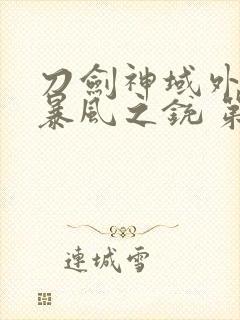 刀劍神域外
暴風之銃 第
連城雪